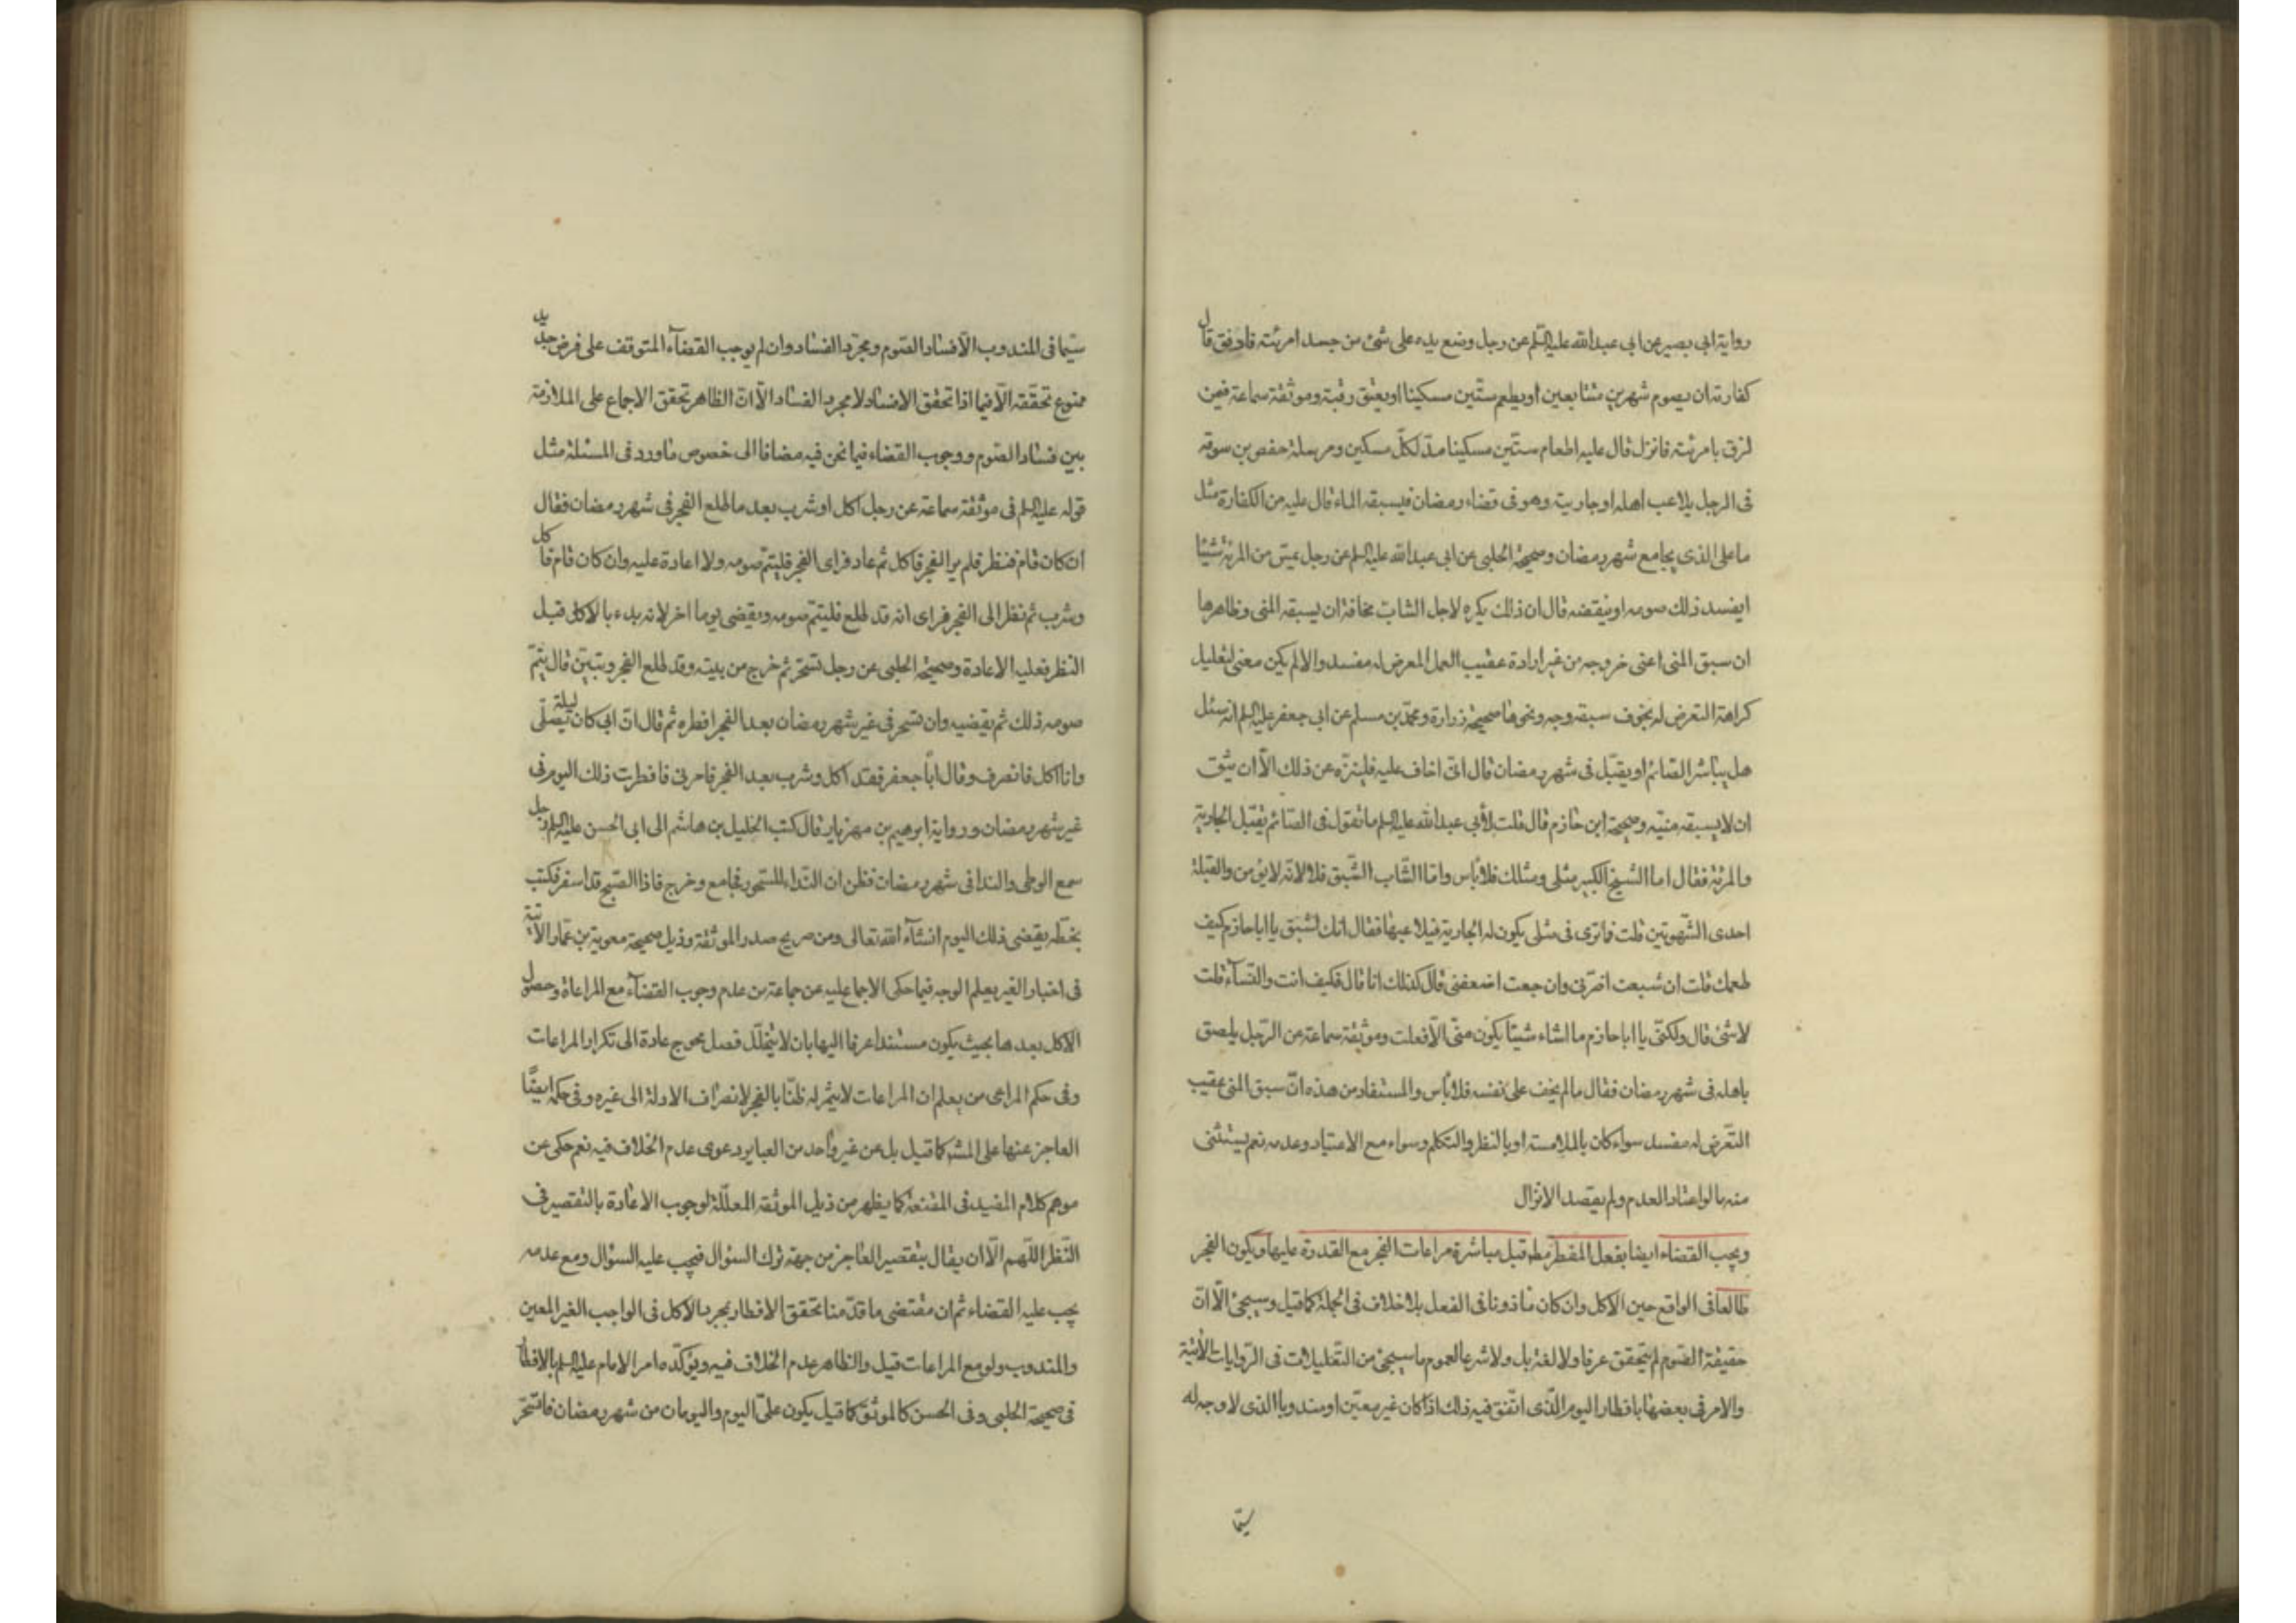 رواية ابي بصير عن ابي عبد الله عليه السلم عن رجل وضع يده على شئ من جسد امرئته فادفق قال
كفارته ان يصوم شهرين متتابعين او يطعم ستين مسكينا او يعتق رقبة وموثقة سماعة فيمن
لزق بامرئته فانزل قال عليه اطعام ستين مسكينا مد لكل مسكين ومرسلة حفص بن سوقه
فى الرجل يلاعب اهله او جاريته وهو فى قضاء رمضان فيسبقه الماء قال عليه من الكفارة مثل
ما على الذى يجامع شهر رمضان وصحيحة الحلبى عن ابى عبد الله عليه السلم عن رجل يمس من المرئة شيئا
ايفسد ذلك صومه او ينقضه قال ان ذلك يكره لاجل الشاب مخافة ان يسبقه المنى وظاهرها
ان سبق المنى اعنى خروجه من غير ارادة عقيب العمل المعرض له مفسد والا لم يكن معنى لتعليل
كراهة التعرض له بخوف سبقه وجه ونحوها صحيحة زرارة ومحمد بن مسلم عن ابى جعفر عليه السلم انه سئل
هل يباشر الصائم او يقبل فى شهر رمضان قال انى اخاف عليه فليتنزه عن ذلك الا ان يثق
ان لا يسبقه منيه وصحيحة ابن حازم قال قلت لأبى عبد الله عليه السلم ما تقول فى الصائم يقبل الجارية
والمرئة فقال اما الشيخ الكبير مثلى ومثلك فلا بأس واما الشاب الشبق فلا لانه لا يؤمن والقبلة
احدى الشهوتين قلت فما ترى فى مثلى يكون له الجارية فيلاعبها فقال انك لشبق يا ابا حازم كيف
طعمك قلت ان شبعت اضرنى وان جعت اضعفنى قال كذلك انا قال فكيف انت والنساء قلت
لا شئ قال ولكنى يا ابا حازم ما اشاء شيئا يكون منى الا فعلت وموثقة سماعة عن الرجل يلصق
باهله فى شهر رمضان فقال ما لم يخف على نفسه فلا بأس والمستفاد من هذه ان سبق المنى عقيب
التعرض له مفسد سواء كان بالملامسة او بالنظر والتكلم وسواء مع الاعتياد وعدمه نعم يستثنى
منه ما لو اعتاد العدم ولم يقصد الانزال
ويجب القضاء ايضا بفعل المفطر مط قبل مباشرة مراعات الفجر مع القدرة عليها ويكون الفجر
طالعا فى الواقع حين الاكل وان كان مأذونا فى الفعل بلا خلاف فى الجملة كما قيل وسيجئ الا ان
حقيقة الصوم لم يتحقق عرفا ولا لغة بل ولا شرعا لعموم ما سيجئ من التعليلات فى الروايات الاتية
والامر فى بعضها بافطار اليوم الذى اتفق فيه ذلك اذا كان غير معين او مندوبا الذى لا وجه له
سيما
سيما فى المندوب الا فساد الصوم ومجرد الفساد وان لم يوجب القضاء المتوقف على فرض جديد
ممنوع تحققه الا فيما اذا تحقق الافساد لا مجرد الفساد الا ان الظاهر تحقق الاجماع على الملازمة
بين فساد الصوم ووجوب القضاء فيما نحن فيه مضافا الى خصوص ما ورد فى المسئلة مثل
قوله عليه السلم فى موثقة سماعة عن رجل اكل او شرب بعد ما طلع الفجر فى شهر رمضان فقال
ان كان قام فنظر فلم ير الفجر فاكل ثم عاد فراى الفجر فليتم صومه ولا اعادة عليه وان كان قام فاكل
وشرب ثم نظر الى الفجر فراى انه قد طلع فليتم صومه ويقضى يوما اخر لانه بدء بالاكل قبل
النظر فعليه الاعادة وصحيحة الحلبى عن رجل تسحر ثم خرج من بيته وقد طلع الفجر وتبين قال يتم
صومه ذلك ثم يقضيه وان تسحر فى غير شهر رمضان بعد الفجر افطره ثم قال ان ابى كان ليلة يصلى
وانا اكل فانصرف وقال اما جعفر فقد اكل وشرب بعد الفجر فامرنى فافطرت ذلك اليوم فى
غير شهر رمضان ورواية ابرهيم بن مهزيار قال كتب الخليل بن هاشم الى ابى الحسن عليه السلم رجل
سمع الوطى والندا فى شهر رمضان فظن ان النداء للسحور فجامع وخرج فاذا الصبح قد اسفر فكتب
بخطه يقضى ذلك اليوم انشاء الله تعالى ومن صريح صدر الموثقة وذيل صحيحة معوية بن عمار الاتية
فى اخبار الغير يعلم الوجه فيما حكى الاجماع عليه عن جماعة من عدم وجوب القضاء مع المراعاة وحصول
الاكل بعدها بحيث يكون مستندا عرفا اليها بان لا يتخلل فصل محوج عادة الى تكرار المراعات
وفى حكم المراعى من يعلم ان المراعات لا يثمر له ظنا بالفجر لانصراف الادلة الى غيره وفى حكمه ايضا
العاجز عنها على المشهور كما قيل بل عن غير واحد من العباير دعوى عدم الخلاف فيه نعم حكى عن
موهم كلام المفيد فى المقنعة كما يظهر من ذيل الموثقة المعللة لوجوب الاعادة بالتقصير فى
النظر اللهم الا ان يقال بتقصير العاجز من جهة ترك السؤال فيجب عليه السؤال ومع عدمه
يجب عليه القضاء ثم ان مقتضى ما قدمنا تحقق الافطار بمجرد الاكل فى الواجب الغير المعين
والمندوب ولو مع المراعات قيل والظاهر عدم الخلاف فيه ويؤكده امر الامام عليه السلم بالافطار
فى صحيحة الحلبى وفى الحسن كالموثق كما قيل يكون على اليوم واليومان من شهر رمضان فاتسحر